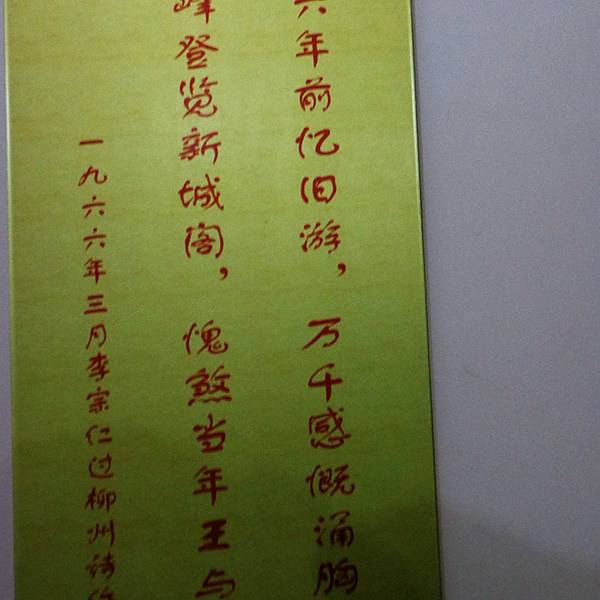 六年前忆旧游，万千感慨涌胸
峰登览新城阁，愧煞当年王与
一九六六年三月李宗仁过柳州诗